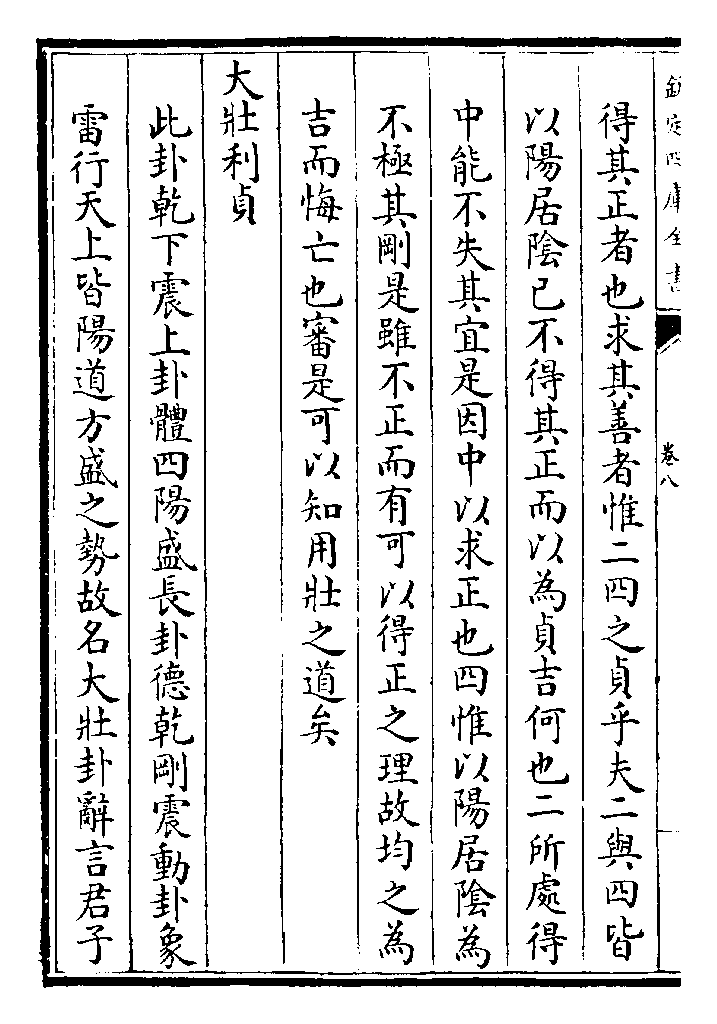 欽定四庫全書
卷八
得其正者也求其善者惟二四之貞乎夫二與四皆
以陽居陰已不得其正而以為貞吉何也二所處得
中能不失其宜是因中以求正也四惟以陽居陰為
不極其剛是雖不正而有可以得正之理故均之為
吉而悔亡也審是可以知用壯之道矣
大壯利貞
此卦乾下震上卦體四陽盛長卦德乾剛震動卦象
雷行天上皆陽道方盛之勢故名大壯卦辭言君子